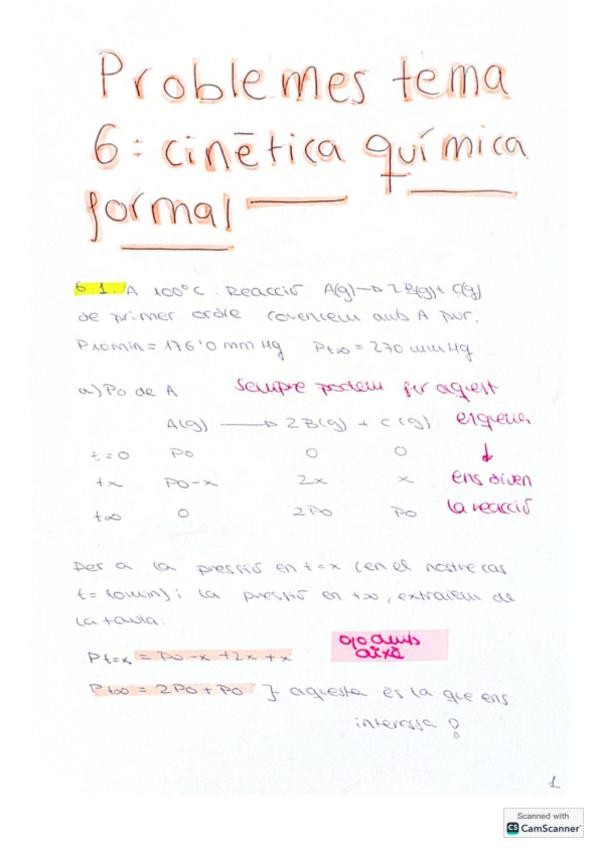 Problemes tema
6: cinètica química
formal
6.1. A 100°C. Reacció A(g)→2B(g)+C(g)
de primer ordre. Comencem amb A pur.
P10min = 176'0 mmHg Pt∞ = 270 mmHg
a) Po de A Sempre podem fer aquest
A(g) → 2B(g) + C(g) esquema
t=0 Po 0 0 ↓
tx Po-x 2x x ens diuen
t∞ 0 2Po Po la reacció
Per a la pressió en t=x (en el nostre cas
t=10min) i la pressió en t∞, extraiem de
la taula:
Pt=x = Po-x+2x+x ojo amb
això
Pt∞ = 2Po+Po } aquesta és la que ens
interessa!
1
Scanned with
CS CamScanner